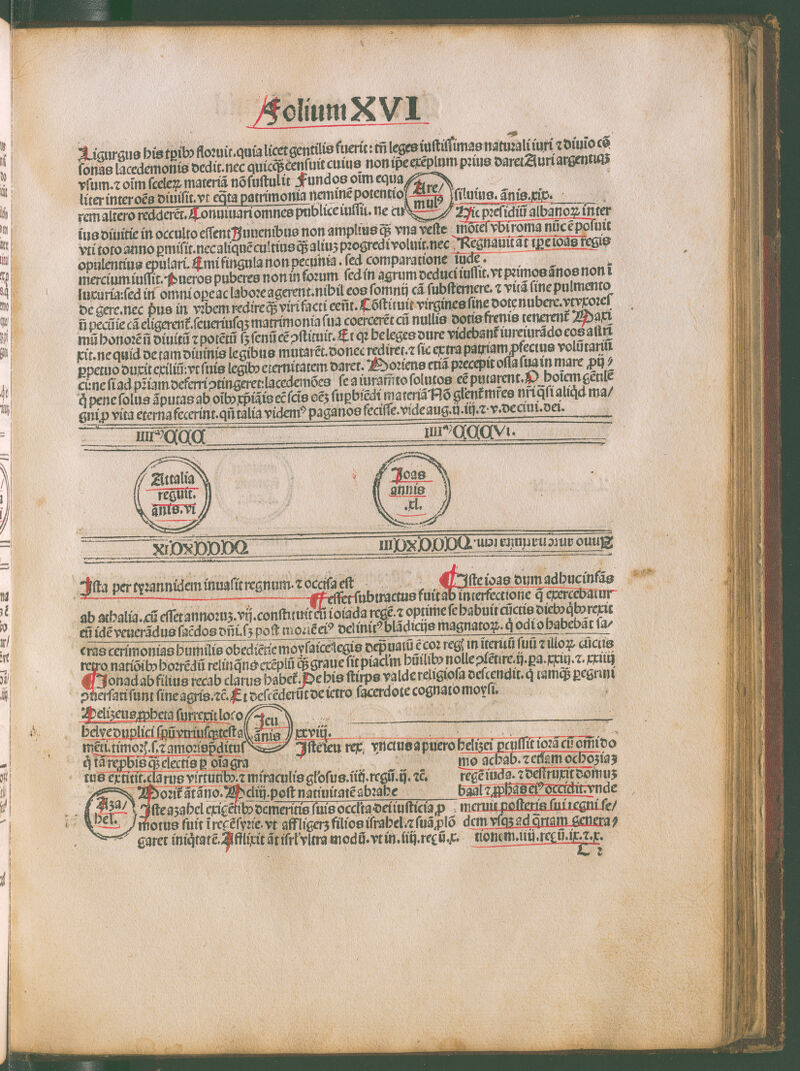 Folium XVI
Ligurgus his tꝑibꝰ floruit. quia licet gentilis fuerit: tn̄ leges iustissimas naturali iuri ⁊ diuīo cō
sonas lacedemonis dedit. nec quicꝗ̄ cēnsuit cuius non ip̄e exēplum prius daret Auri argentiqꝫ
vsum. ⁊ oīm scelerꝝ materiā nō sustulit Fundos oīm equa
liter inter oēs diuisit. vt eq̄ta patrimonia neminē potentio
rem altero redderēt. Conuiuari omnes publice iussit. ne cu
ius diuitie in occulto essent Iuuenibus non amplius qꝫ vna veste
vti toto anno ꝑmisit. nec aliquē cultius qꝫ aliuꝫ progredi voluit. nec
opulentius epulari. Emi singula non pecunia. sed comparatione
mercium iussit. Pueros puberes non in forum sed in agrum deduci iussit. vt primos ānos non ī
luxuria: sed in omni opere ac labore agerent. nihil eos somnij cā substernere. ⁊ vitā sine pulmento
de gere. nec prius in vrbem redire qꝫ viri facti eēnt. Cōstituit virgines sine dote nubere. vt vxores
n̄ pecūie cā eligerent. seueriusqꝫ matrimonia sua coercerēt cū nullis dotis frenis tenerent Maxi
mū honorē n̄ diuitū ⁊ potētū sꝫ senū eē ꝯstituit. Et qꝛ he leges dure videbant iureiurādo eos astri
xit. ne quid de tam diuinis legibus mutarēt. donec rediret. ⁊ sic extra patriam ꝓfectus volūtariū
ꝑpetuo duxit exiliū. vt suis legibꝰ eternitatem daret. Moriens etiā precepit ossa sua in mare ꝓijci
ne si ad pr̄iam deferri ꝯtingeret: lacedemōes se a iuramēto solutos eē putarent. O hoīem gētilē
q̄ pene solus
gni ꝑ vita eterna fecerint. qn̄ talia videmꝰ paganos fecisse. vide aug. ij. iij. ⁊ v. de ciui. dei.
Are/
mulꝰ
siluius. ānis. xix.
Hic presidiū albanoꝝ inter
mōtes vbi roma nūc ē posuit
Regnauit āt tꝑe ioas regis
iude.
Attalia
reguit.
ānis. vi
Ioas
annis
.xl.
Ista per tyrannidem inuasit regnum. ⁊ occisa est
Iste ioas dum adhuc infās
esset subtractus fuit ab interfectione q̄ exercebatur
ab athalia. cū esset annoruꝫ. vij. constituit eū ioiada regē. ⁊ optime se habuit cūctis diebꝰ qͥbꝰ rexit
eū idē venerādus sacēdos dn̄i. sꝫ post mortē eiꝰ delinitꝰ blādicijs magnatoꝝ. q̄ odio habebāt sa/
cras cerimonias humilis obediētie moysaice legis
retro natiōibꝰ horrēdū relinqn̄s exēplū qꝫ graue sit
Ionadab filius recab clarus habet̄. De his stirps valde religiosa descendit. q̄ tamqꝫ peregrini
ꝯuersati sunt sine agris. ⁊c. Et descēderūt de ietro sacerdote cognato moysi.
Helizeus ꝓpheta surrexit loco
helye duplici spū vtriusqꝫ testa
mēti. timorꝭ. s. ⁊ amoris p̄ditus
q̄ tā reprobis qꝫ electis ꝑ oīa gra
tus extitit. clarus virtutibꝰ. ⁊ miraculis gl'osus. iiij. regū. ij. ⁊c.
Morit̄ āt āno. post natiuitatē abrahe
Ieu
ānis
xxviij.
Iste ieu rex, vnctus a puero helizei ꝑcussit iorā cū omī do
mo achab. ⁊ etiam ochoziaꝫ
regē iuda. ⁊ destruxit domuꝫ
baal ⁊ ꝓphas eiꝰ occidit. vnde
meruit posteris sui regni se/
dem vsqꝫ ad q̄rtam genera/
tionem. iiij. regū. ix. ⁊. x.
Aza/
hel.
Iste azahel exigētibꝰ demeritis suis occlta dei iusticia ꝓ
motus fuit ī regē syrie. vt affligerꝫ filios israhel. ⁊ suā ꝓlō
garet iniq̄tatē. Afflixit āt isrl' vltra modū. vt in. iiij. regū. x.